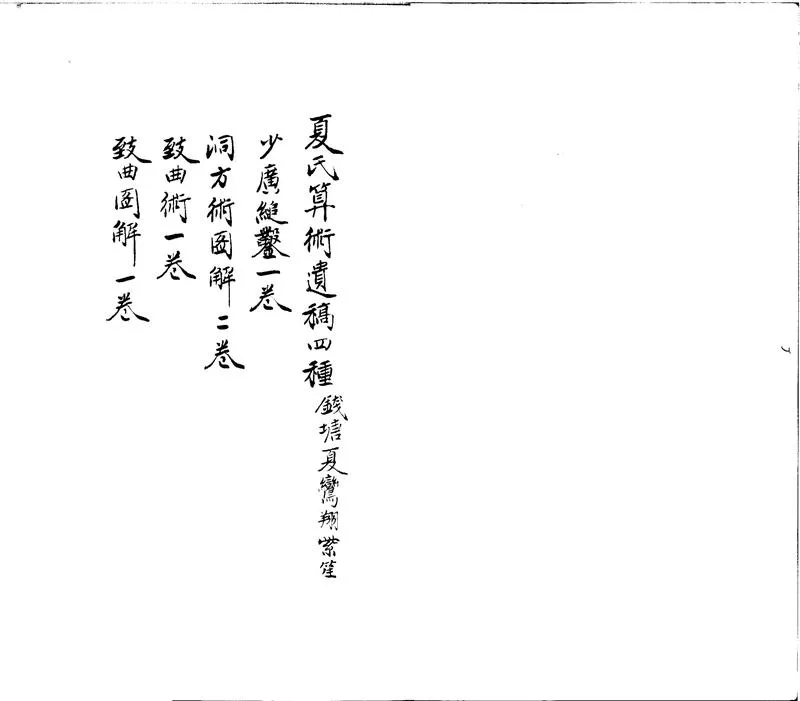 夏氏算術遺稿四種 錢塘夏鸞翔紫笙
少廣縋鑿一卷
洞方術圖解二卷
致曲術一卷
致曲圖解一卷